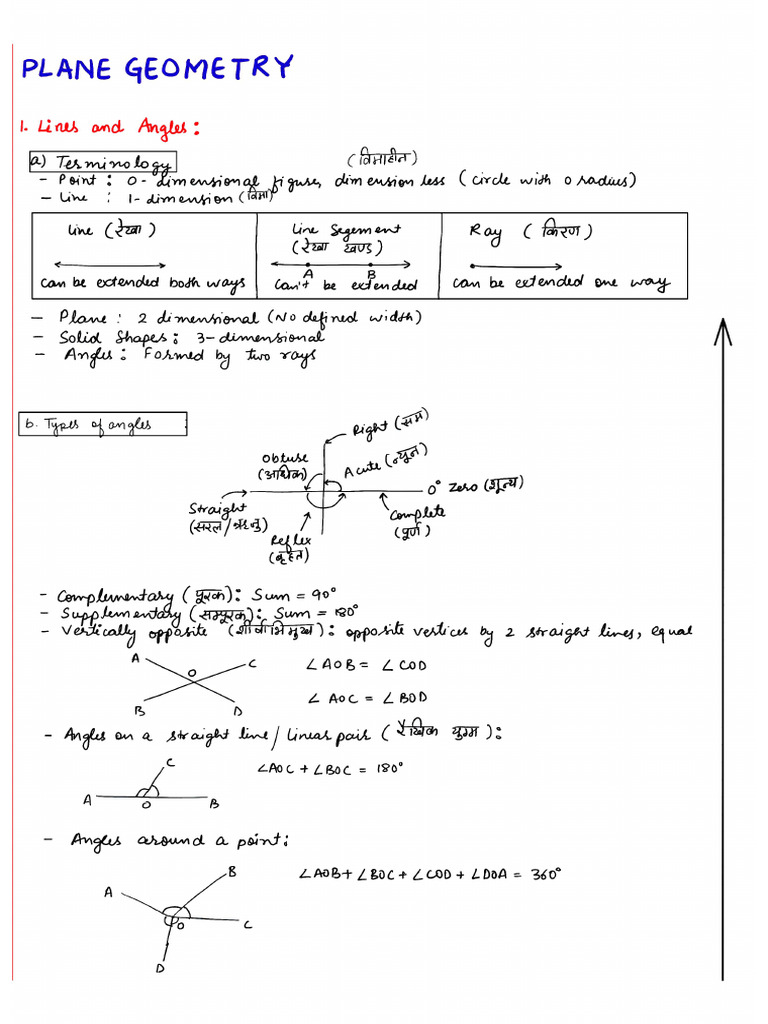 PLANE GEOMETRY
1. Lines and Angles:
a) Terminology
(विमाहीन)
- Point: 0-dimensional figure, dimension less (circle with 0 radius)
- Line : 1-dimension (विमा)
Line (रेखा)
can be extended both ways
Line Segement
(रेखा खण्ड)
A B
can't be extended
Ray (किरण)
can be extended one way
- Plane: 2 dimensional (No defined width)
- Solid Shapes: 3-dimensional
- Angles: Formed by two rays
b. Types of angles
Right (सम)
Obtuse
(अधिक)
Acute (न्यून)
0° Zero (शून्य)
Straight
(सरल/ऋजु)
Complete
(पूर्ण)
Reflex
(बृहत)
- Complementary (पूरक): Sum = 90°
- Supplementary (सम्पूरक): Sum = 180°
- Vertically opposite (शीर्षाभिमुख): opposite vertices by 2 straight lines, equal
A C
O
B D
∠AOB = ∠COD
∠AOC = ∠BOD
- Angles on a straight line/Linear pair (रैखिक युग्म):
C
A O B
∠AOC + ∠BOC = 180°
- Angles around a point:
B
A
O C
D
∠AOB + ∠BOC + ∠COD + ∠DOA = 360°